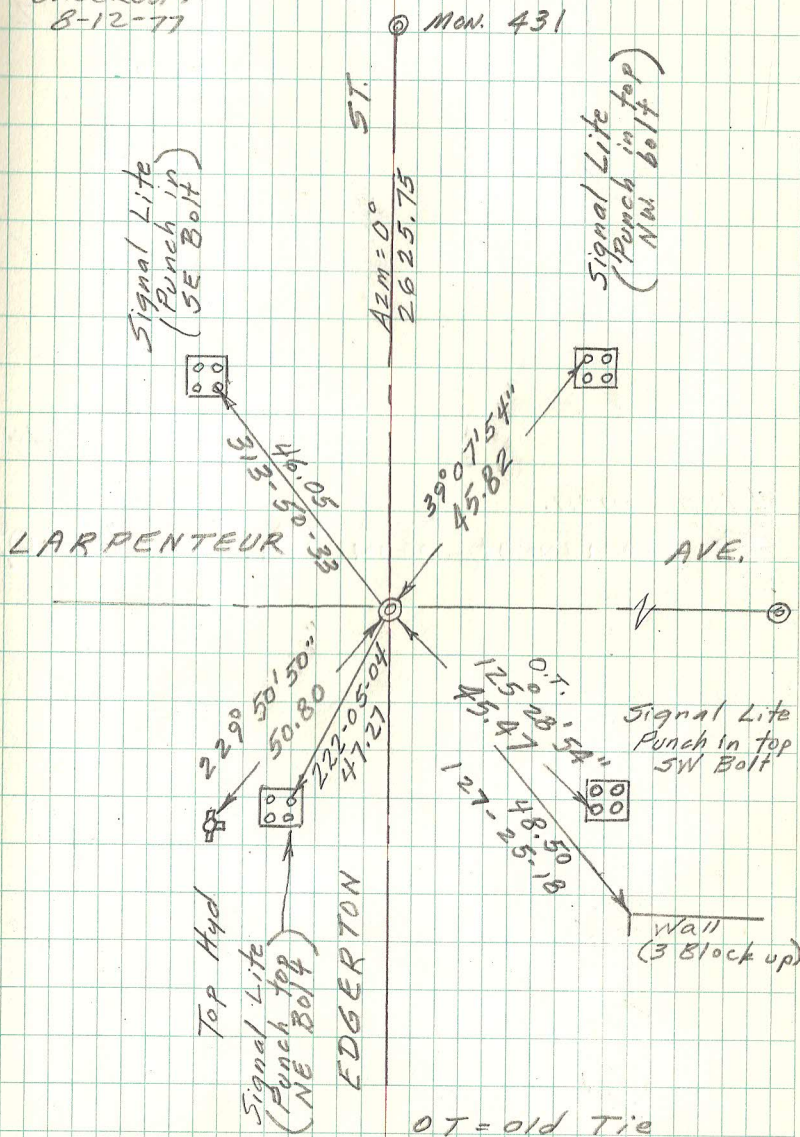 8-12-77
Mon. 431
ST.
Azm=0°
2625.75
Signal Lite
(Punch in
SE Bolt)
Signal Lite
(Punch in top
NW. bolt)
50.94
313-50-33
39° 07' 54"
45.82
LARPENTEUR AVE.
229° 50' 50"
50.80
222-05-04
47.27
O.T.
125° 28' 54"
45.47
48.50
127-25-18
Signal Lite
Punch in top
SW Bolt
Wall
(3 Block up)
Top Hyd
Signal Lite
(Punch top
NE Bolt)
EDGERTON
OT = Old Tie